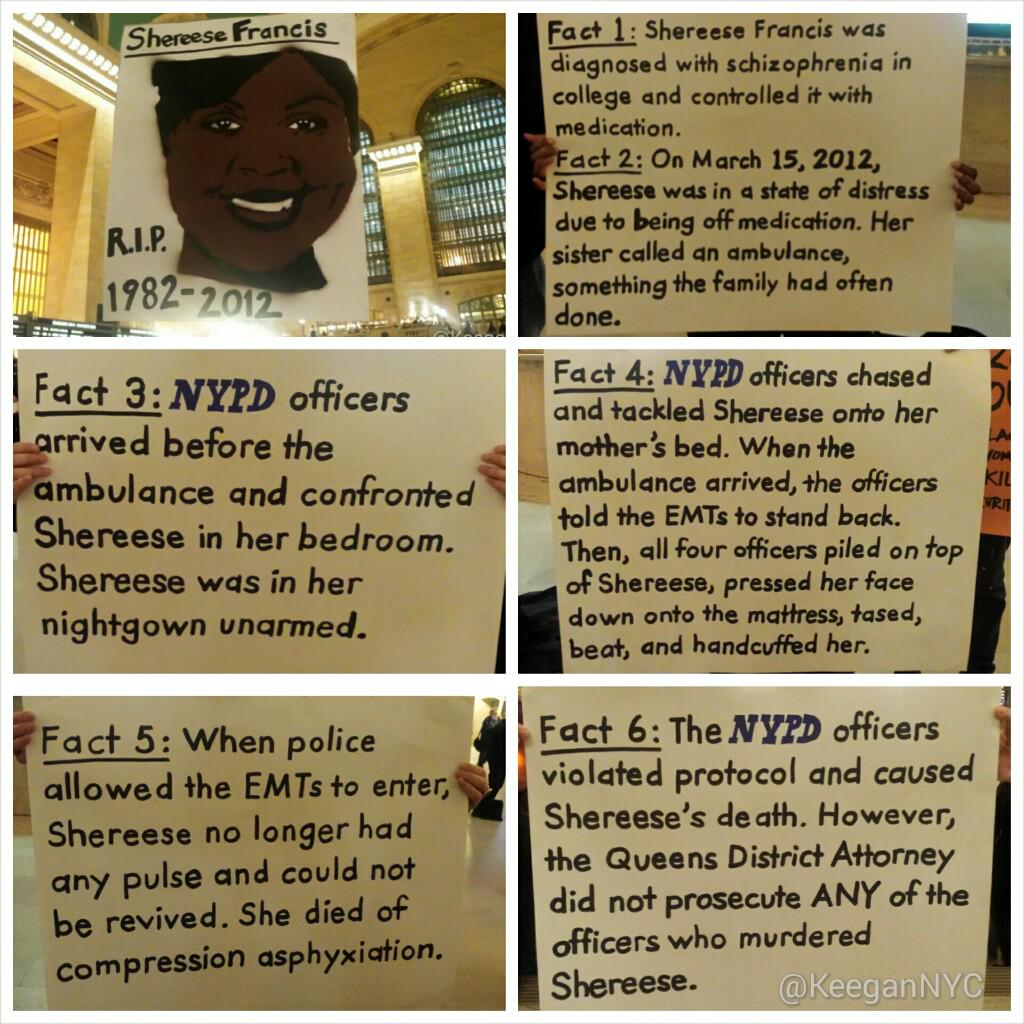 Shereese Francis
R.I.P.
1982-2012
Fact 1: Shereese Francis was
diagnosed with schizophrenia in
college and controlled it with
medication.
Fact 2: On March 15, 2012,
Shereese was in a state of distress
due to being off medication. Her
sister called an ambulance,
something the family had often
done.
Fact 3: NYPD officers
arrived before the
ambulance and confronted
Shereese in her bedroom.
Shereese was in her
nightgown unarmed.
Fact 4: NYPD officers chased
and tackled Shereese onto her
mother's bed. When the
ambulance arrived, the officers
told the EMTs to stand back.
Then, all four officers piled on top
of Shereese, pressed her face
down onto the mattress, tased,
beat, and handcuffed her.
Fact 5: When police
allowed the EMTs to enter,
Shereese no longer had
any pulse and could not
be revived. She died of
compression asphyxiation.
Fact 6: The NYPD officers
violated protocol and caused
Shereese's death. However,
the Queens District Attorney
did not prosecute ANY of the
officers who murdered
Shereese.
@KeeganNYC